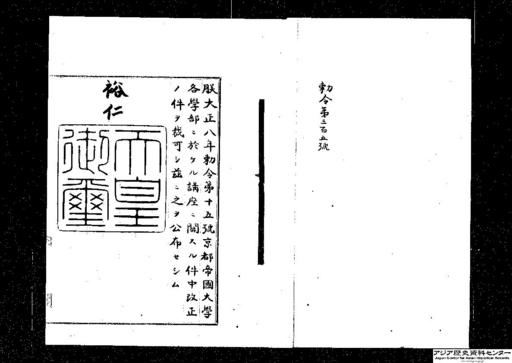 勅令第三百五號
朕大正八年勅令第十五號京都帝國大學
各學部ニ於ケル講座ニ關スル件中改正
ノ件ヲ裁可シ茲ニ之ヲ公布セシム
裕仁
天皇
御璽
アジア歴史資料センター
Japan Center for Asian Historical Records